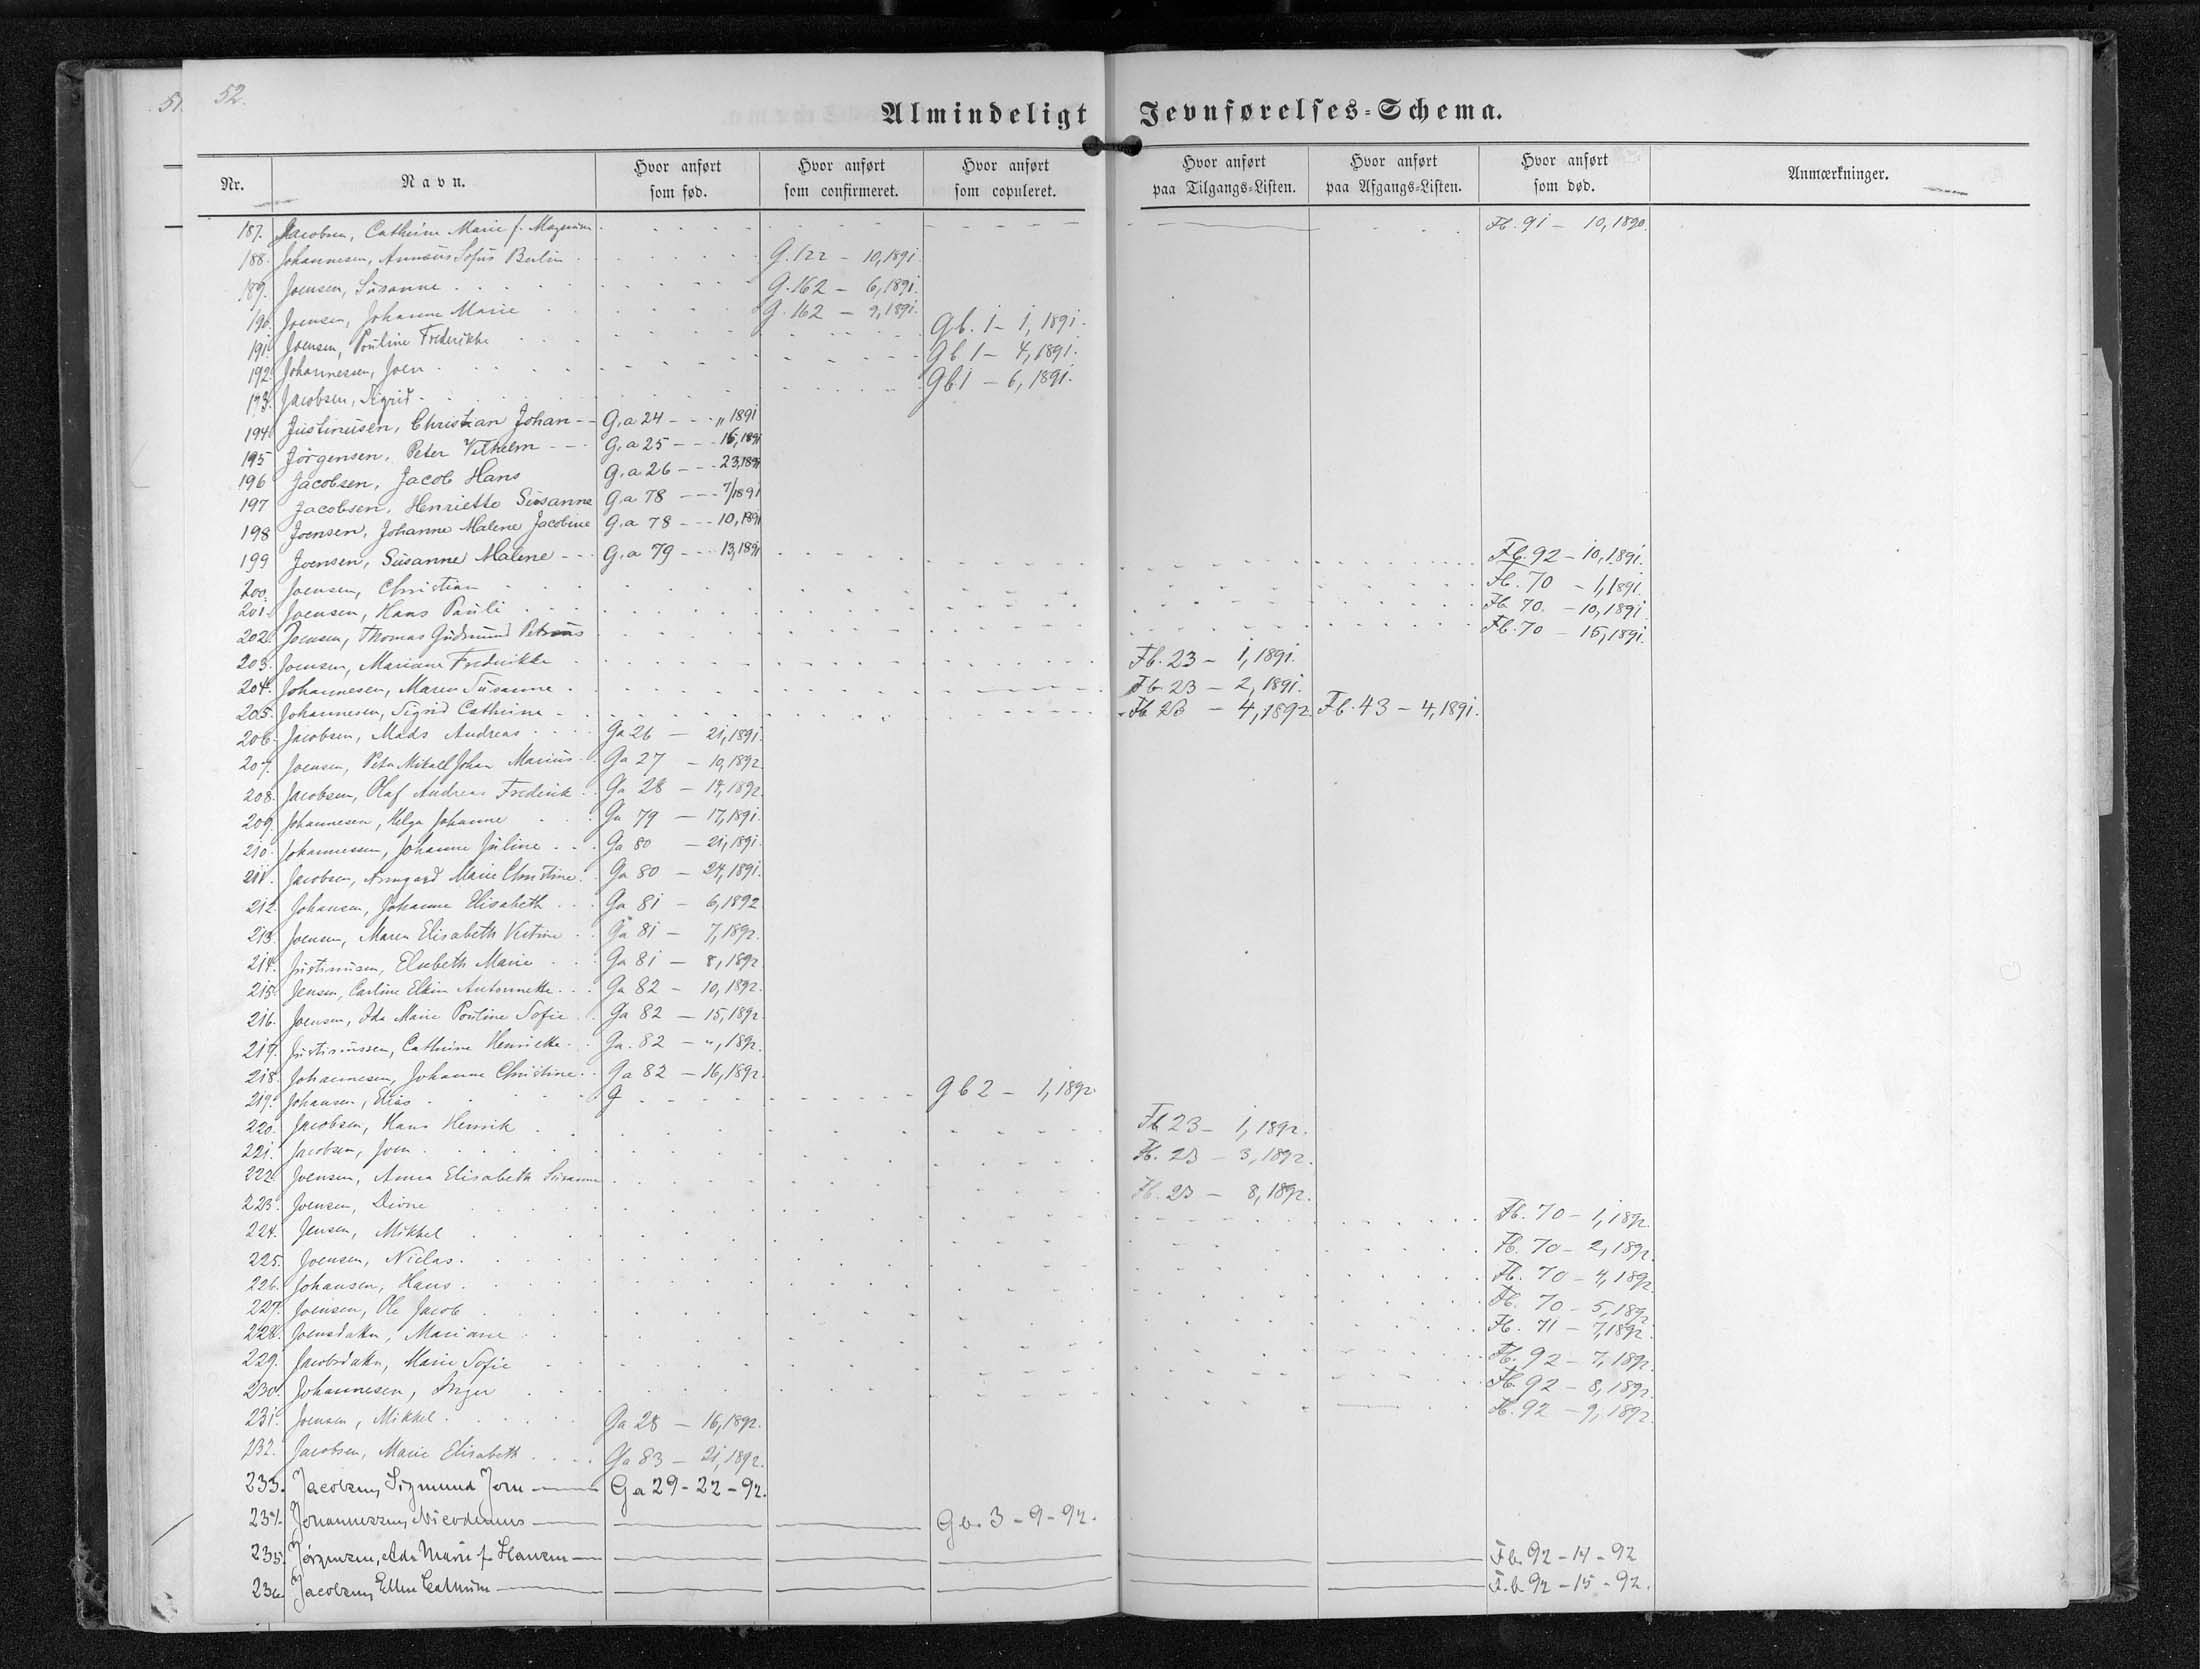 51. 52.
Almindeligt Jevnførelses-Schema.
Nr. Navn. Hvor anført som fød. Hvor anført som confirmeret. Hvor anført som copuleret. Hvor anført paa Tilgangs-Listen. Hvor anført paa Afgangs-Listen. Hvor anført som død. Anmærkninger.
187. Jacobsen, Cathrine Marie f. Magnusen Fb. 91 - 10, 1890.
188. Johannesen, Annæus Sofus Berlin G. 122 - 10, 1891
189. Joensen, Susanne G. 162 - 6, 1891.
190. Joensen, Johanne Marie G. 162 - 9, 1891.
191. Joensen, Pouline Frederikke Gb. 1 - 1, 1891.
192. Johannesen, Joen Gb. 1 - 4, 1891.
193. Jacobsen, Sigrid Gb. 1 - 6, 1891.
194. Justinusen, Christian Johan G.a 24 - „ 1891
195 Jörgensen, Peter Vilhelm G.a 25 - 16, 1891
196 Jacobsen, Jacob Hans G.a 26 - 23, 1891
197 Jacobsen, Henriette Susanne G.a 78 - 7/1891
198 Joensen, Johanne Malene Jacobine G.a 78 - 10, 1891
199 Joensen, Susanne Malene G.a 79 - 13, 1891 Fb. 92 - 10, 1891.
200. Joensen, Christian Fb. 70 - 1, 1891.
201. Joensen, Hans Pauli Fb. 70. - 10, 1891
202. Joensen, Thomas Gudmund Petræus Fb. 70 - 15, 1891.
203. Joensen, Mariane Frederikke Fb. 23 - 1, 1891.
204. Johannesen, Maren Susanne Fb. 23 - 2, 1891.
205. Johannesen, Sigrid Cathrine Fb. 23 - 4, 1892. Fb. 43 - 4, 1891.
206. Jacobsen, Mads Andreas Ga 26 - 21, 1891.
207. Joensen, Peter Mikael Johan Marius Ga 27 - 10, 1892.
208. Jacobsen, Olaf Andreas Frederik Ga 28 - 14, 1892.
209. Johannesen, Helga Johanne Ga 79 - 17, 1891.
210. Johannesen, Johanne Juline Ga 80 - 21, 1891.
211. Jacobsen, Armgard Marie Christine Ga 80 - 24, 1891.
212. Johansen, Johanne Elisabeth Ga 81 - 6, 1892
213. Joensen, Maren Elisabeth Ga 81 - 7, 1892.
214. Justinusen, Elsebeth Marie Ga 81 - 8, 1892
215. Jensen, Carline Antonnette Ga 82 - 10, 1892.
216. Joensen, Ida Marie Pouline Sofie Ga 82 - 15, 1892.
217. Justinussen, Cathrine Henriette Ga. 82 - „, 1892.
218. Johannesen, Johanne Christine Ga 82 - 16, 1892.
219. Johansen, Elias G Gb 2 - 1, 1892
220. Jacobsen, Hans Henrik Fb 23 - 1, 1892.
221. Jacobsen, Joen Fb. 23 - 3, 1892.
222. Joensen, Anna Elisabeth Susanne Fb. 23 - 8, 1892.
223. Joensen, Fb. 70 - 1, 1892.
224. Jensen, Mikkel Fb. 70 - 2, 1892.
225. Joensen, Niclas. Fb. 70 - 4, 1892
226. Johansen, Hans. Fb. 70 - 5, 1892
227. Joensen, Ole Jacob Fb. 71 - 7, 1892.
228. Joensdatter, Mariane Fb. 92 - 7, 1892.
229. Jacobsdatter, Marie Sofie Fb. 92 - 8, 1892.
230. Johannesen, Inger Fb. 92 - 9, 1892.
231. Joensen, Mikkel Ga 28 - 16, 1892.
232. Jacobsen, Marie Elisabeth Ga 83 - 21, 1892.
233. Jacobsen, Sigmund Joen Ga 29 - 22 - 92.
234. Johannessen, Nicodemus Gb. 3 - 9 - 92.
235. Jörgensen, Ada Marie f. Hansen Fb. 92 - 14 - 92
236 Jacobsen, Ellen Cathrine F.b. 92 - 15 - 92.